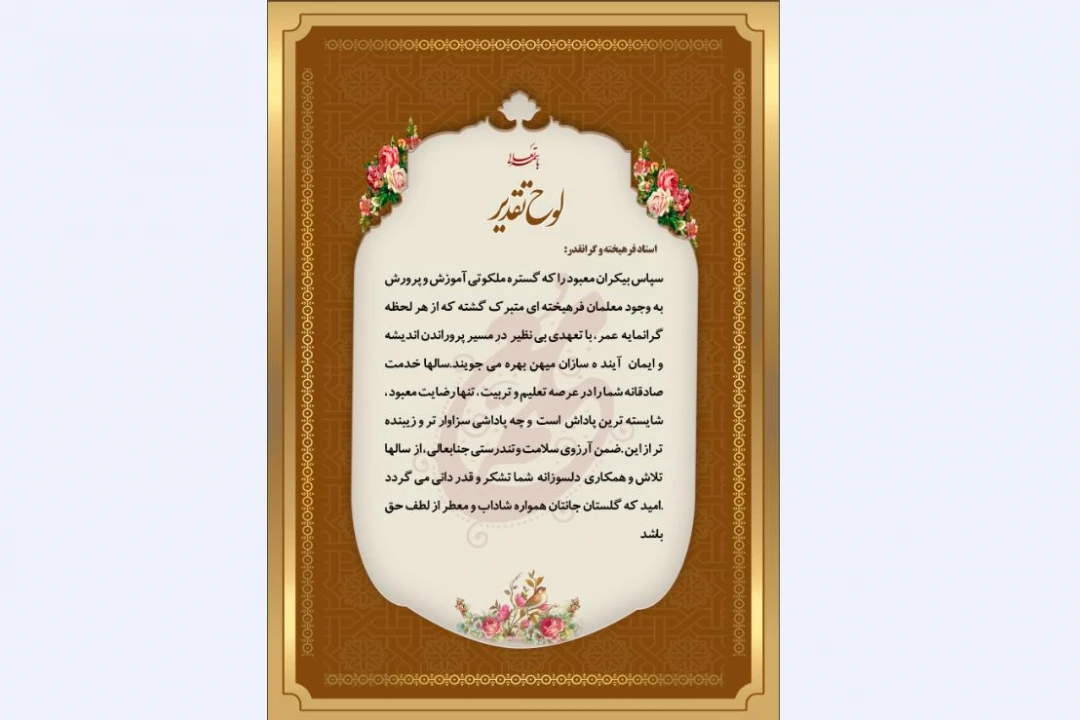 باسمه تعالی
لوح تقدیر
استاد فرهیخته و گرانقدر:
سپاس بیکران معبود را که گستره ملکوتی آموزش و پرورش
به وجود معلمان فرهیخته ای متبرک گشته که از هر لحظه
گرانمایه عمر، با تعهدی بی نظیر در مسیر پروراندن اندیشه
و ایمان آیند ه سازان میهن بهره می جویند.سالها خدمت
صادقانه شما را در عرصه تعلیم و تربیت ، تنها رضایت معبود ،
شایسته ترین پاداش است و چه پاداشی سزاوار تر و زیبنده
تر از این.ضمن آرزوی سلامت وتندرستی جنابعالی ،از سالها
تلاش و همکاری دلسوزانه شما تشکر و قدر دانی می گردد
.امید که گلستان جانتان همواره شاداب و معطر از لطف حق
باشد